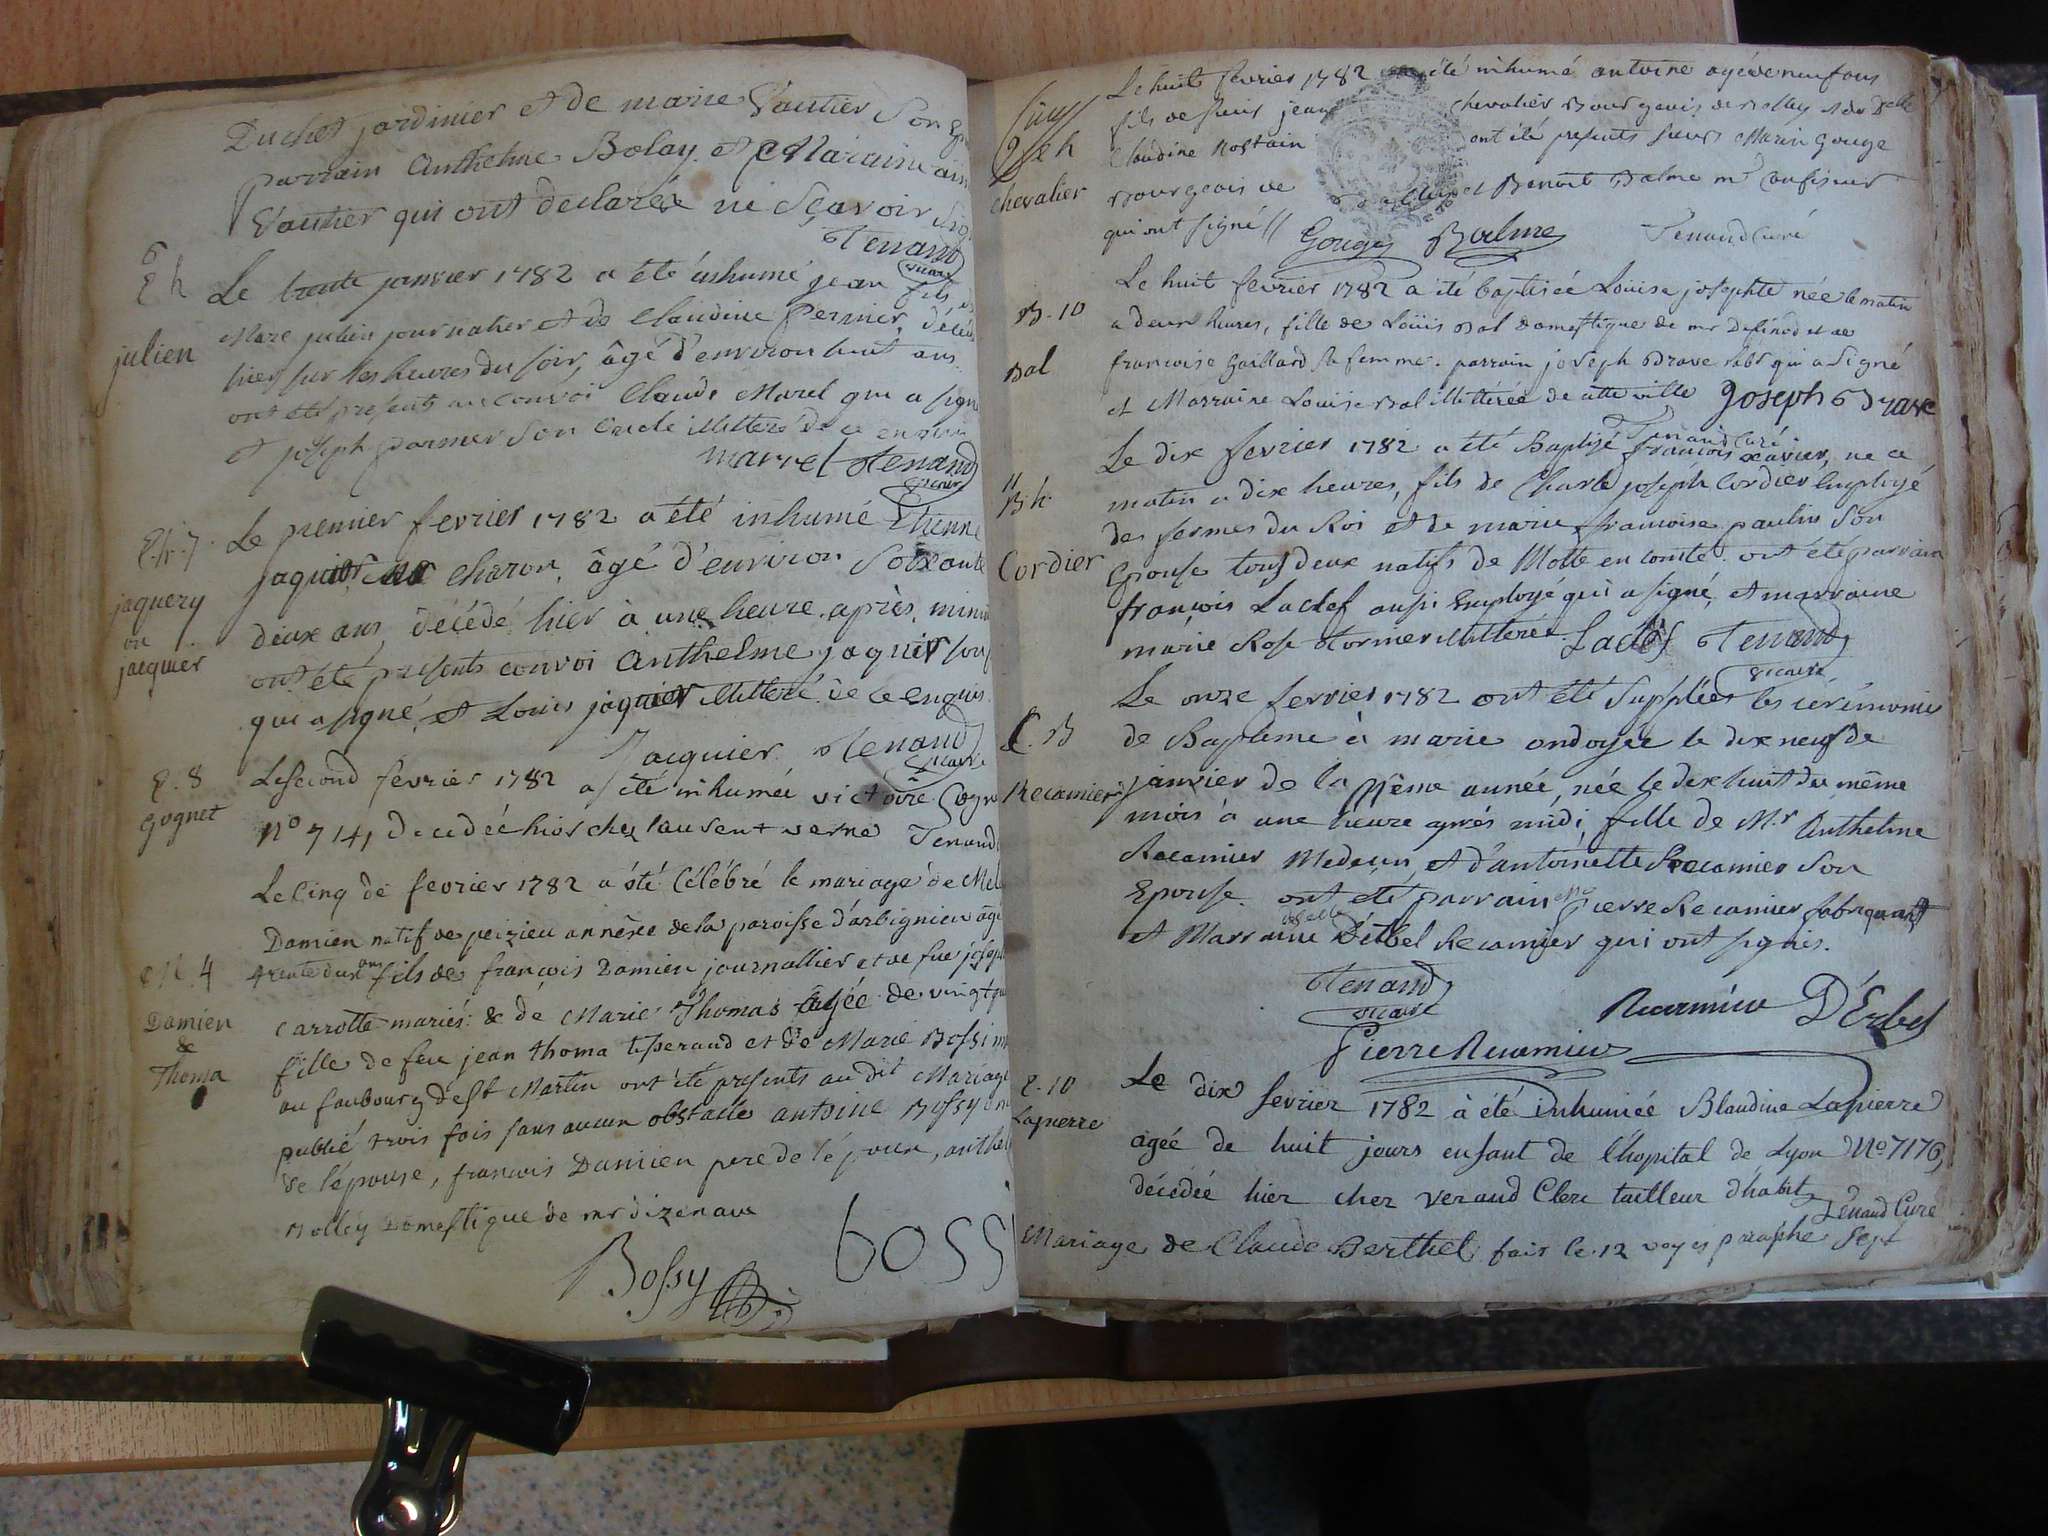 Duchet jardinier et de marie Vautier son
parrain Anthelme Bolay et Maraine
Vautier qui ont declarés ne sçavoir
Tenand
vicaire
6
E h
julien
Le trente janvier 1782 a été inhumé jean fils
Marc julien journalier et de Claudine Perrier,
hier sur les heures du soir, âgé d'environ huit ans
ont été presents au convoi Claude Marel qui a signé
et joseph parmer son oncle illitteré de ce enquis
marrel Tenand
vicaire
E. h. 7
jaquery
ou
jacquier
Le premier fevrier 1782 a été inhumé Etienne
jaquier charon, âgé d'environ soixante
deux ans, décédé hier à une heure après,
ont été presents convoi Anthelme jaquier
qui a signé, et Louis jaquier illitteré de ce enquis
Jacquier Tenand
vicaire
E. 8
Gognet
Le second fevrier 1782 a été inhumée victoire
N° 7141 decedée hier chez laurent verne Tenand
M. 4
Damien
&
Thoma
Le Cinq de fevrier 1782 a été Célébré le mariage de
Damien natif de peizieu annexe de la paroisse d'arbignieu
trente deux ans fils de françois Damien journallier et de fue
Carrotte mariés: & de Marie Thomas âgée de
fille de feu jean thoma tisserand et de Marie Bossi
au faubourg de St Martin ont été presents audit Mariage
publié trois fois sans aucun obstacle antoine Bossy
de l'épouse, francois Damien pere de l'époux,
Bolley Domestique de mr dizenave
Bossy bossi
joseph
chevalier
Le huit fevrier 1782 été inhumé antoine agé de neuf ans
fils de sieur jean chevalier Bourgeois de Belley et de Dlle
Claudine Rostain ont été presents sieurs Marin Gouge
Bourgeois de et Benoit Balme md confiseur
qui ont signé //
Gouge Balme Tenand Curé
B. 10
Bal
Le huit fevrier 1782 a été baptisée Louise josephte née le matin
a deux heures, fille de Loüis Bal domestique de mr Desinod et de
francoise Gaillard sa femme. parrain joseph Brave qui a signé
et Marraine Louise Bal illitterée de cette ville Joseph Brave
Tenand Curé
11
B h
Cordier
Le dix fevrier 1782 a été Baptisé françois xavier, né ce
matin a dix heures, fils de Charle joseph Cordier Employé
des fermes du Roi et de marie françoise paulin son
Epouse tous deux natifs de Motte en comté. ont été parrain
françois Laclef aussi Employé qui a signé, et marraine
marie Rose tormer illitterée. Laclef Tenand
vicaire
C. B
Recamier
Le onze fevrier 1782 ont été Supplées les cérémonies
de Baptême à marie ondoyée le dix neuf de
janvier de la même année, née le dix huit du même
mois à une heure après midi, fille de Mr Anthelme
Recamier Medecin, et d'antoinette Recamier son
Epouse. ont été parrain Mr Pierre Recamier fabriquant
et Marraine dselle D'Erbel Recamier qui ont signés.
Tenand
vicaire
Recamier D'Erbel
Pierre Recamier
E. 10
Lapierre
Le dix fevrier 1782 à été inhumée Blandine Lapierre
agée de huit jours enfant de l'hopital de Lyon N° 7176,
décédée hier chez verand Clerc tailleur d'habit
Tenand Curé
Mariage de Claude Berthel fait le 12 voyes paraphe Sept